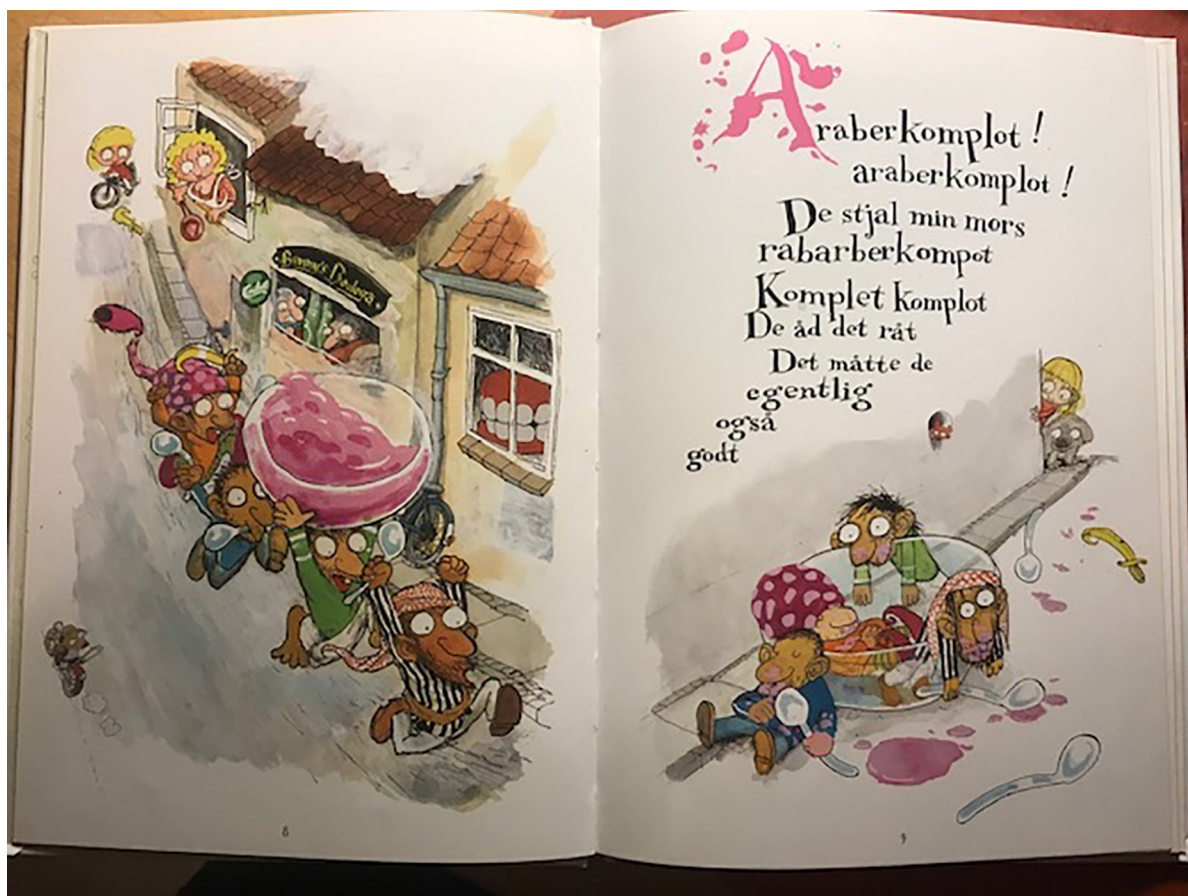 Jimmy's Bodega
Araberkomplot !
araberkomplot !
De stjal min mors
rabarberkompot
Komplet komplot
De åd det råt
Det måtte de
egentlig
også
godt
8
9